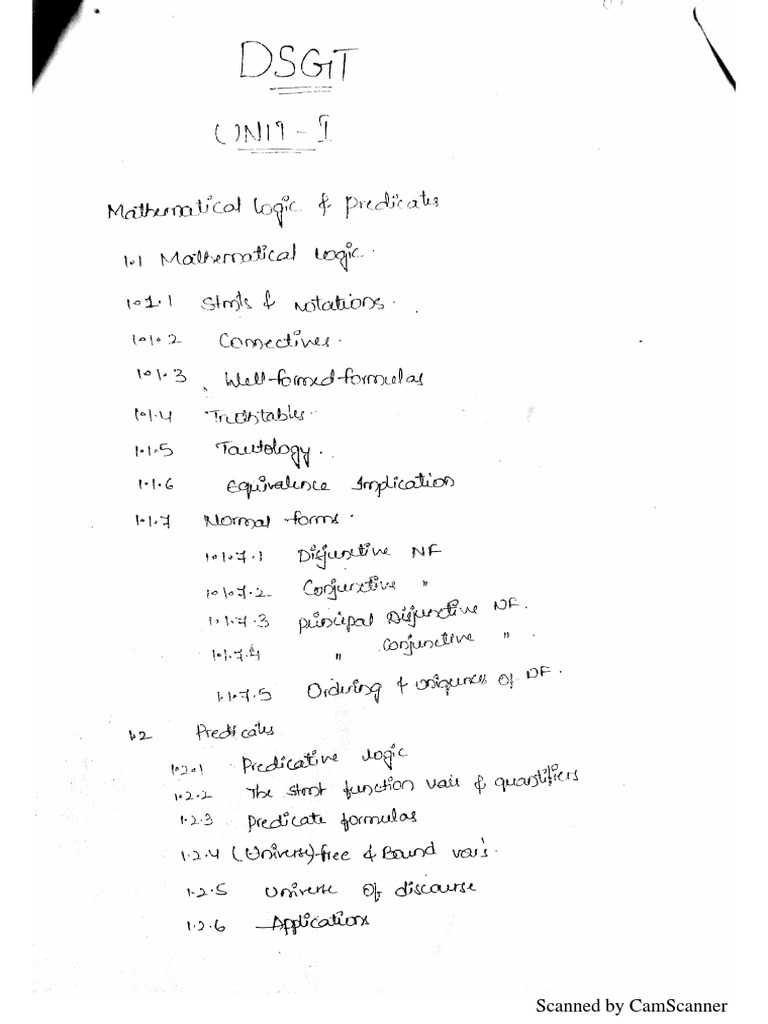 DSGT
UNIT - I
Mathematical logic & Predicates
1.1 Mathematical logic.
1.1.1 Stmts & Notations.
1.1.2 Connectives.
1.1.3 Well-formed-formulas
1.1.4 Truthtables.
1.1.5 Tautology.
1.1.6 Equivalence Implication
1.1.7 Normal forms.
1.1.7.1 Disjunctive NF
1.1.7.2 Conjunctive "
1.1.7.3 Principal Disjunctive NF.
1.1.7.4 " Conjunctive ".
1.1.7.5 Ordering & uniquness of DF.
1.2 Predicates
1.2.1 Predicative logic
1.2.2 The stmt function vars & quantifiers
1.2.3 Predicate formulas
1.2.4 (Universe)-free & Bound var's.
1.2.5 Universe of discourse
1.2.6 Applications
Scanned by CamScanner